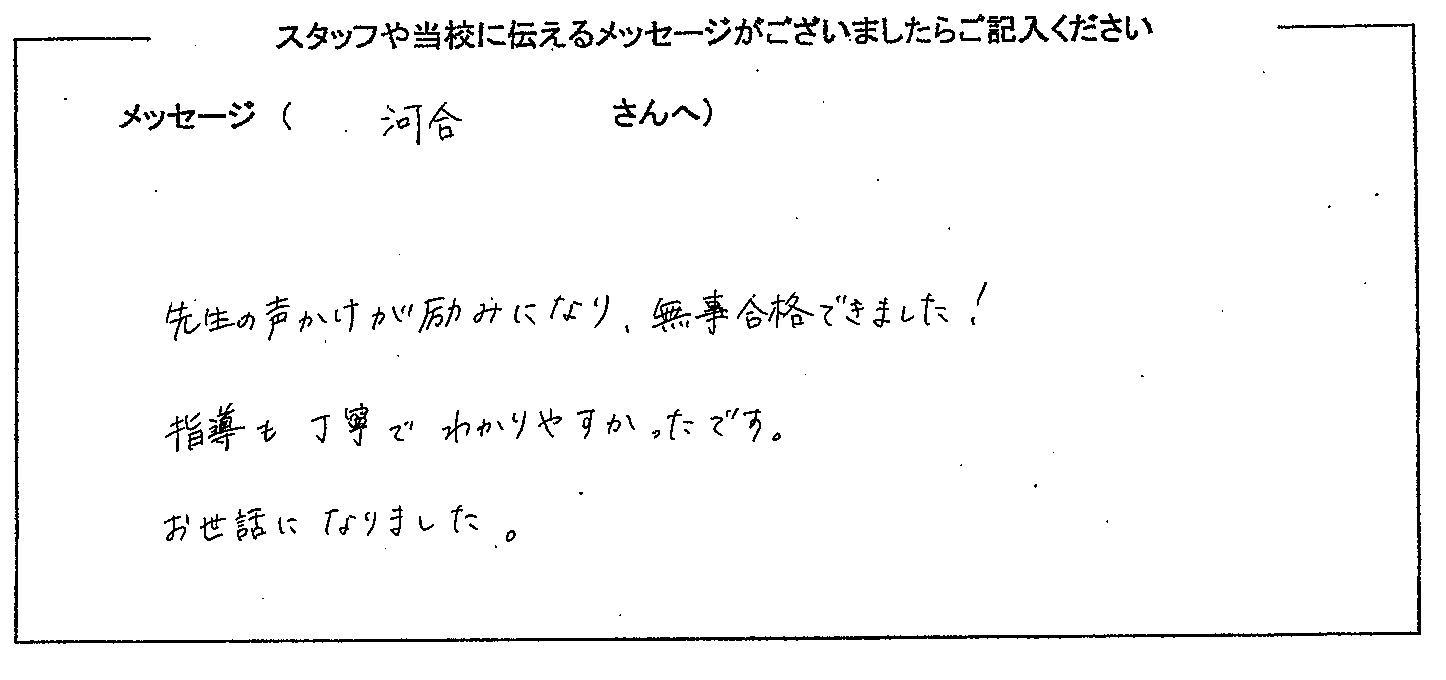 スタッフや当校に伝えるメッセージがございましたらご記入ください
メッセージ( 河合 さんへ)
先生の声かけが励みになり、無事合格できました!
指導も丁寧でわかりやすかったです。
お世話になりました。